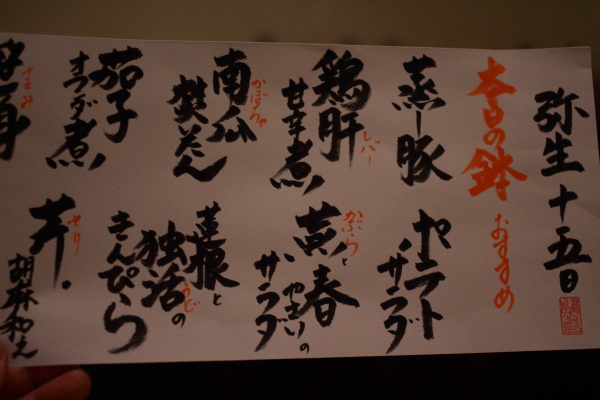 弥生十五日
本日の鉢 おすすめ
蒸し豚
サラダ
鶏肝 レバー
甘辛煮
かぶらと
春やさいの
サラダ
南瓜 かぼちゃ
蓮根と
独活の
きんぴら
茄子
オランダ煮
芹 せり
胡麻和え